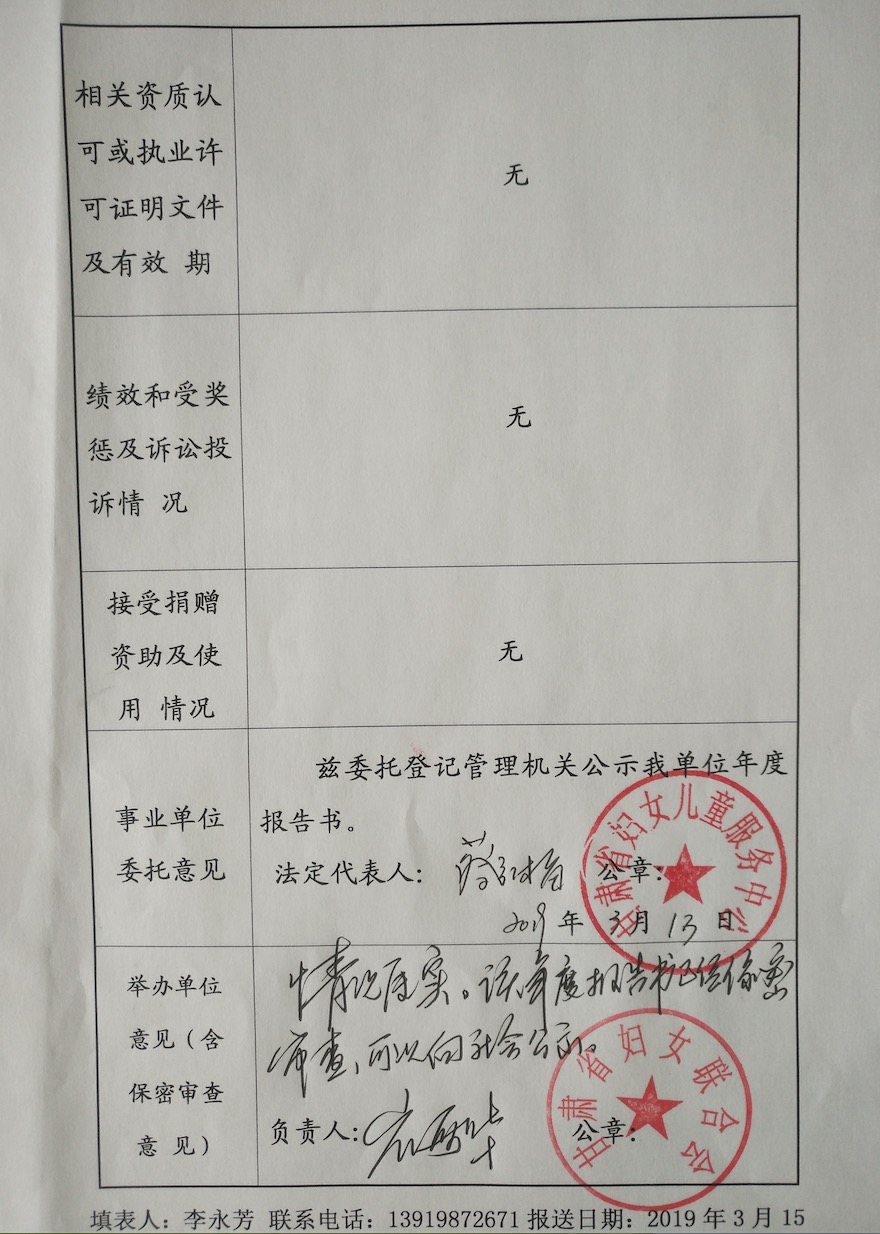 相关资质认
可或执业许
可证明文件
及有效 期
无
绩效和受奖
惩及诉讼投
诉情 况
无
接受捐赠
资助及使
用 情况
无
事业单位
委托意见
兹委托登记管理机关公示我单位年度
报告书。
法定代表人： 公章：
2019 年 3月 13 日
甘肃省妇女儿童服务中心
举办单位
意见（含
保密审查
意 见）
情况属实。该年度报告书已经保密
审查，可以向社会公示。
负责人： 公章：
甘肃省妇女联合会
填表人：李永芳 联系电话：13919872671 报送日期：2019 年 3 月 15